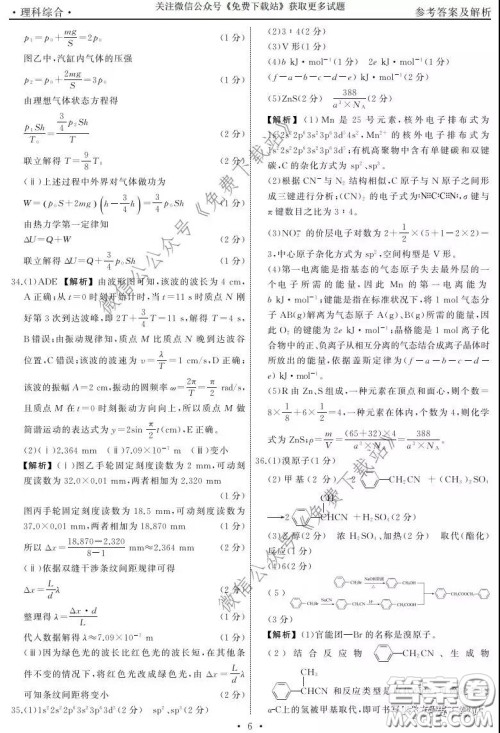 关注微信公众号《免费下载站》获取更多试题
·理科综合·
参考答案及解析
p₁=p₀+mg/S=2p₀ (1分)
图乙中，汽缸内气体的压强
p₂=p₀+2mg/S=3p₀ (1分)
由理想气体状态方程得
p₁Sh/T₀=p₂S·¾h/T (2分)
联立解得 T=9/8 T₀ (2分)
(ⅱ)上述过程中外界对气体做功为
W=(p₀S+2mg)(h-¾h)=¾p₀Sh (2分)
由热力学第一定律知
ΔU=Q+W (1分)
联立解得 ΔU=Q+¾p₀Sh (1分)
34.(1)ADE 【解析】由波形图可知，该波的波长为4 cm，
A正确；从t=0时刻开始计时，当t=11 s时质点N刚
好第3次到达波峰，即2T+¾T=11 s，解得T=4 s，
B错误；由振动规律知，质点M比质点N晚到达波谷
位置，C错误；该波的波速为v=λ/T=1 cm/s，D正确；
该波的振幅A=2 cm，振动的圆频率ω=2π/T=π/2 rad/s，
且质点M在t=0时刻振动方向向上，所以质点M做
简谐运动的表达式为y=2sin π/2 t(cm)，E正确。
(2)(ⅰ)2.364 (ⅱ)7.09×10⁻⁷ m (ⅲ)变小
【解析】(ⅰ)图乙手轮固定刻度读数为2 mm，可动刻
度读数为32.0×0.01 mm，两者相加为2.320 mm
(1分)
图丙手轮固定刻度读数为18.5 mm，可动刻度读数为
37.0×0.01 mm，两者相加为18.870 mm (1分)
所以Δx=(18.870-2.320)/(8-1) mm≈2.364 (2分)
(ⅱ)依据双缝干涉条纹间距规律可得
Δx=L/d λ (2分)
整理得λ=Δx·d/L (1分)
代入数据解得λ≈7.09×10⁻⁷ m (1分)
(ⅲ)因为绿色光的波长比红色光的波长短，在其他条
件不变的情况下，将红色光改成绿色光，由Δx=L/d λ
可知条纹间距将变小 (2分)
35.(1)1s²2s²2p⁶3s²3p⁶3d⁵(2分) sp²、sp³(2分)
(2)3∶4(2分)
(3)V形(1分)
(4)b kJ·mol⁻¹(1分) 2e kJ·mol⁻¹(1分)
(f-a-b-c-d-e) kJ·mol⁻¹(2分)
(5)ZnS(2分) 388/(a³×N_A)(2分)
【解析】(1)Mn是25号元素，核外电子排布式为
1s²2s²2p⁶3s²3p⁶3d⁵4s²，Mn²⁺的核外电子排布式为
1s²2s²2p⁶3s²3p⁶3d⁵；有机高聚物中含有单键和双
键，C的杂化方式为sp²、sp³。
(2)根据CN⁻与N₂结构相似，C原子与N原子之间形
成三键进行分析；(CN)₂的电子式为:N⋮⋮C:C⋮⋮N:，σ键与
π键数目之比为3∶4。
(3)NO₂⁻的价层电子对数为2+½×(5+1-2×2)=
3，中心原子杂化方式为sp²，空间构型是V形。
(4)第一电离能是指基态的气态原子失去最外层的一
个电子所需的能量，因此Mn的第一电离能为
b kJ·mol⁻¹；键能是指在标准状况下，将1 mol气态分
子AB(g)解离为气态原子A(g)、B(g)所需的能量，因
此O₂的键能为2e kJ·mol⁻¹；晶格能是1 mol离子化
合物中的正、负离子从相互分离的气态结合成离子晶体时
所放出的能量，依据盖斯定律为(f-a-b-c-d-
e) kJ·mol⁻¹。
(5)R由Zn、S组成，一种元素在顶点和面心，则个数=
8×⅛+6×½=4，一种元素在体内，个数为4，则化学
式为ZnS；ρ=m/V=(65+32)×4/(a³×N_A)=388/(a³×N_A)。
36.(1)溴原子(1分)
(2)甲基(2分) 2 CH₂CN +(CH₃)₂SO₄
→2 CH₃ CHCN +H₂SO₄(2分)
(3)乙醇(2分) 浓H₂SO₄、加热(2分) 取代(酯化)
反应(1分)
(4)6(2分)
(5)
(3分)
【解析】(1)官能团—Br的名称是溴原子。
(2)结合反应物 CH₂CN、生成物
CH₃
CHCN 和反应类型是
α-C上的氢被甲基取代，即可书写
微信公众号《免费下载站》
微信公众号《免费下载站》
答案圈
MXQE.COM
·6·